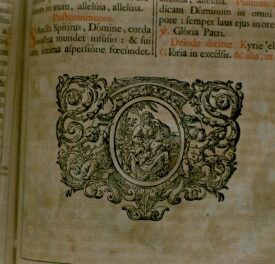 tum in eum, alleluia, alleluia.
Postcommunio.
SAncti Spiritus, Dómine, corda
mundet infusio : & sui
intima aspersione fœcundet.
alleluia, alleluia.
dicam Dóminum in omni
pore : semper laus ejus in ore
℣. Glória Patri.
Deinde dicitur. Kyrie
Glória in excélsis. & alia, ut